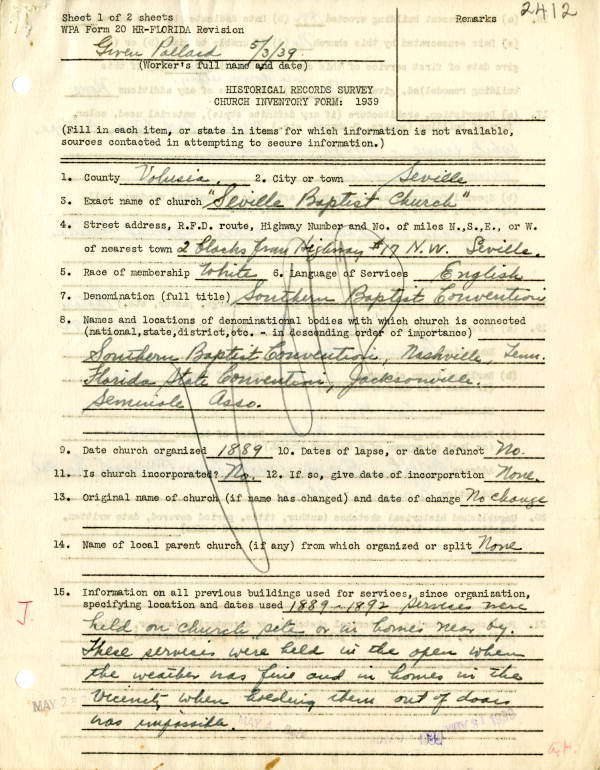 Sheet 1 of 2 sheets
WPA Form 20 HR-FLORIDA Revision
Remarks
2412
Gwen Pallard 5/3/39.
(Worker's full name and date)
HISTORICAL RECORDS SURVEY
CHURCH INVENTORY FORM: 1939
(Fill in each item, or state in items for which information is not available,
sources contacted in attempting to secure information.)
1. County Volusia. 2. City or town Seville
3. Exact name of church "Seville Baptist Church"
4. Street address, R.F.D. route, Highway Number and No. of miles N.,S.,E., or W.
of nearest town 2 blocks from Highway #17 N.W. Seville.
5. Race of membership White 6. Language of Services English
7. Denomination (full title) Southern Baptist Convention
8. Names and locations of denominational bodies with which church is connected
(national,state,district,etc. - in descending order of importance)
Southern Baptist Convention, Nashville. Tenn.
Florida State Convention, Jacksonville.
Seminole Asso.
9. Date church organized 1889 10. Dates of lapse, or date defunct No.
11. Is church incorporated? No. 12. If so, give date of incorporation None.
13. Original name of church (if name has changed) and date of change No change
14. Name of local parent church (if any) from which organized or split None
15. Information on all previous buildings used for services, since organization,
specifying location and dates used 1889-1892 services were
held on church site or in homes near by.
These services were held in the open when
the weather was fine and in homes in the
vicinity when holding them out of doors
was impossible.
J
MAY